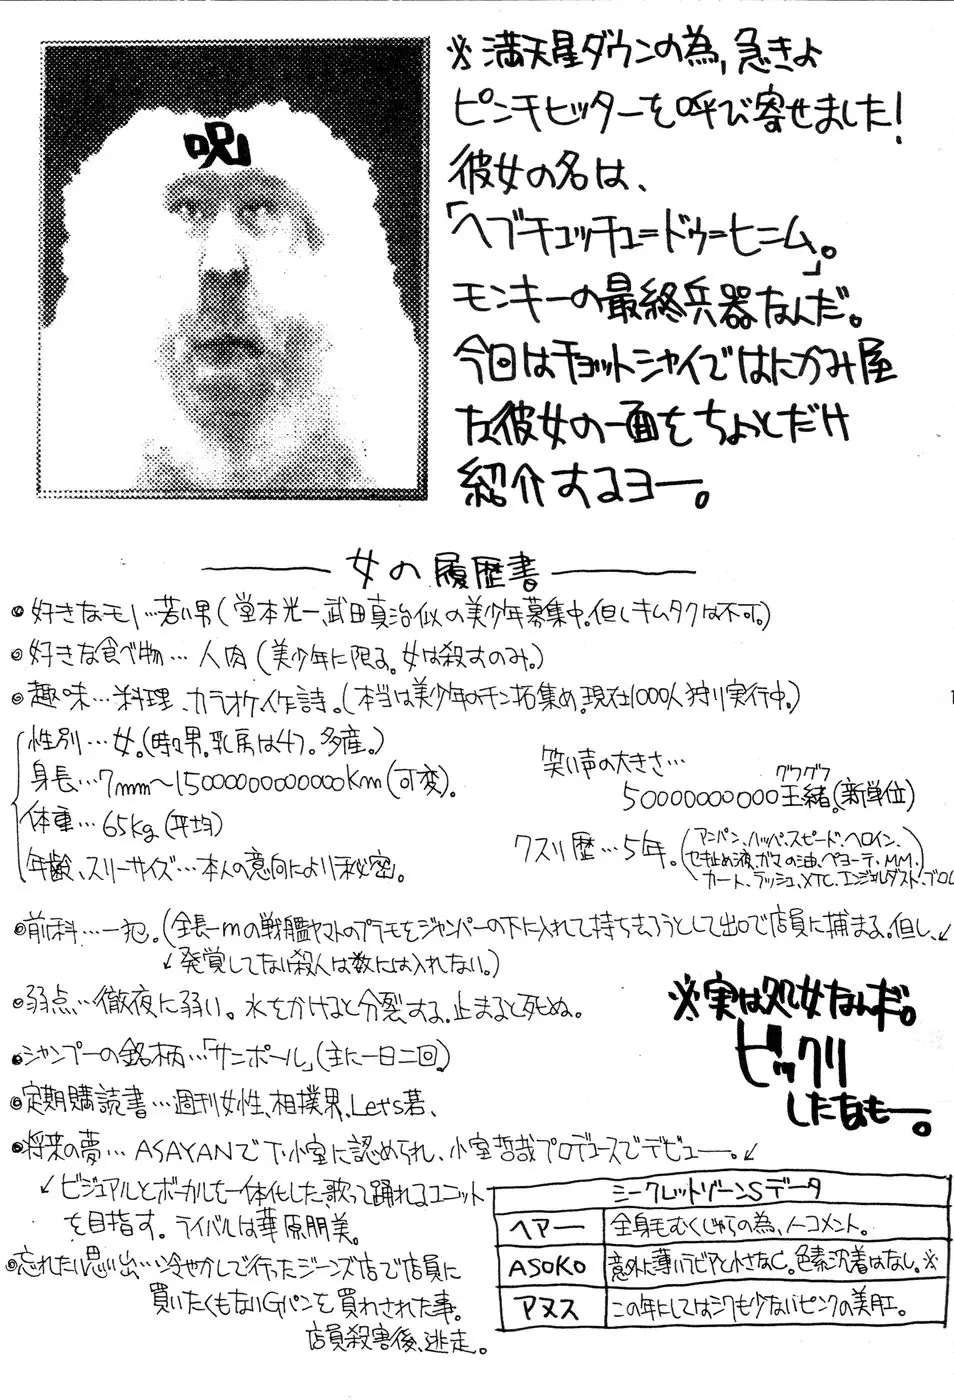 呪
※満天星ダウンの為、急きょ
ピンチヒッターを呼び寄せました!
彼女の名は、
「ヘブチュッチュ=ドゥ=ヒニム」。
モンキーの最終兵器なんだ。
今回はチョットシャイではにかみ屋
な彼女の一面をちょっとだけ
紹介するヨー。
女の履歴書
●好きなモノ…若い男(堂本光一、武田真治似の美少年募集中。但しキムタクは不可。)
●好きな食べ物…人肉(美少年に限る。女は殺すのみ。)
●趣味…料理、カラオケ、作詩。(本当は美少年のチン拓集め。現在1000人狩り実行中。)
性別…女。(時々男。乳房は47。多産。)
身長…7mm〜15000000000000Km(可変)。
体重…65kg(平均)
年齢、スリーサイズ…本人の意向により秘密。
笑い声の大きさ…
グワグワ
50000000000王緒。(新単位)
クスリ歴…5年。(アンパン、ハッパ、スピード、ヘロイン、
セキ止め液、ガマの油、ペヨーテ、MM、
カート、ラッシュ、XTC、エンジェルダスト、ブロン
●前科…一犯。(全長一mの戦艦ヤマトのプラモをジャンパーの下に入れて持ち去ろうとして出口で店員に捕まる。但し、↙
↙発覚してない殺人は数には入れない。)
●弱点…徹夜に弱い。水をかけると分裂する。止まると死ぬ。
※実は処女なんだ。
ビックリ
したなもー。
●シャンプーの銘柄…「サンポール」(主に一日二回)
●定期購読書…週刊女性、相撲界、Let's碁、
●将来の夢…ASAYANで下小室に認められ、小室哲哉プロデュースでデビュー。↙
↙ビジュアルとボーカルを一体化した、歌って踊れるユニット
を目指す。ライバルは華原朋美。
●忘れたい思い出…冷やかしで行ったジーンズ店で店員に
買いたくもないGパンを買わされた事。
店員殺害後、逃走。
シークレットゾーンSデータ
ヘアー 全身毛むくじゃらの為、ノーコメント。
ASOKO 意外に薄いラビアと小さなC。色素沈着はなし。※
アヌス この年にしてはシワも少ないピンクの美肛。